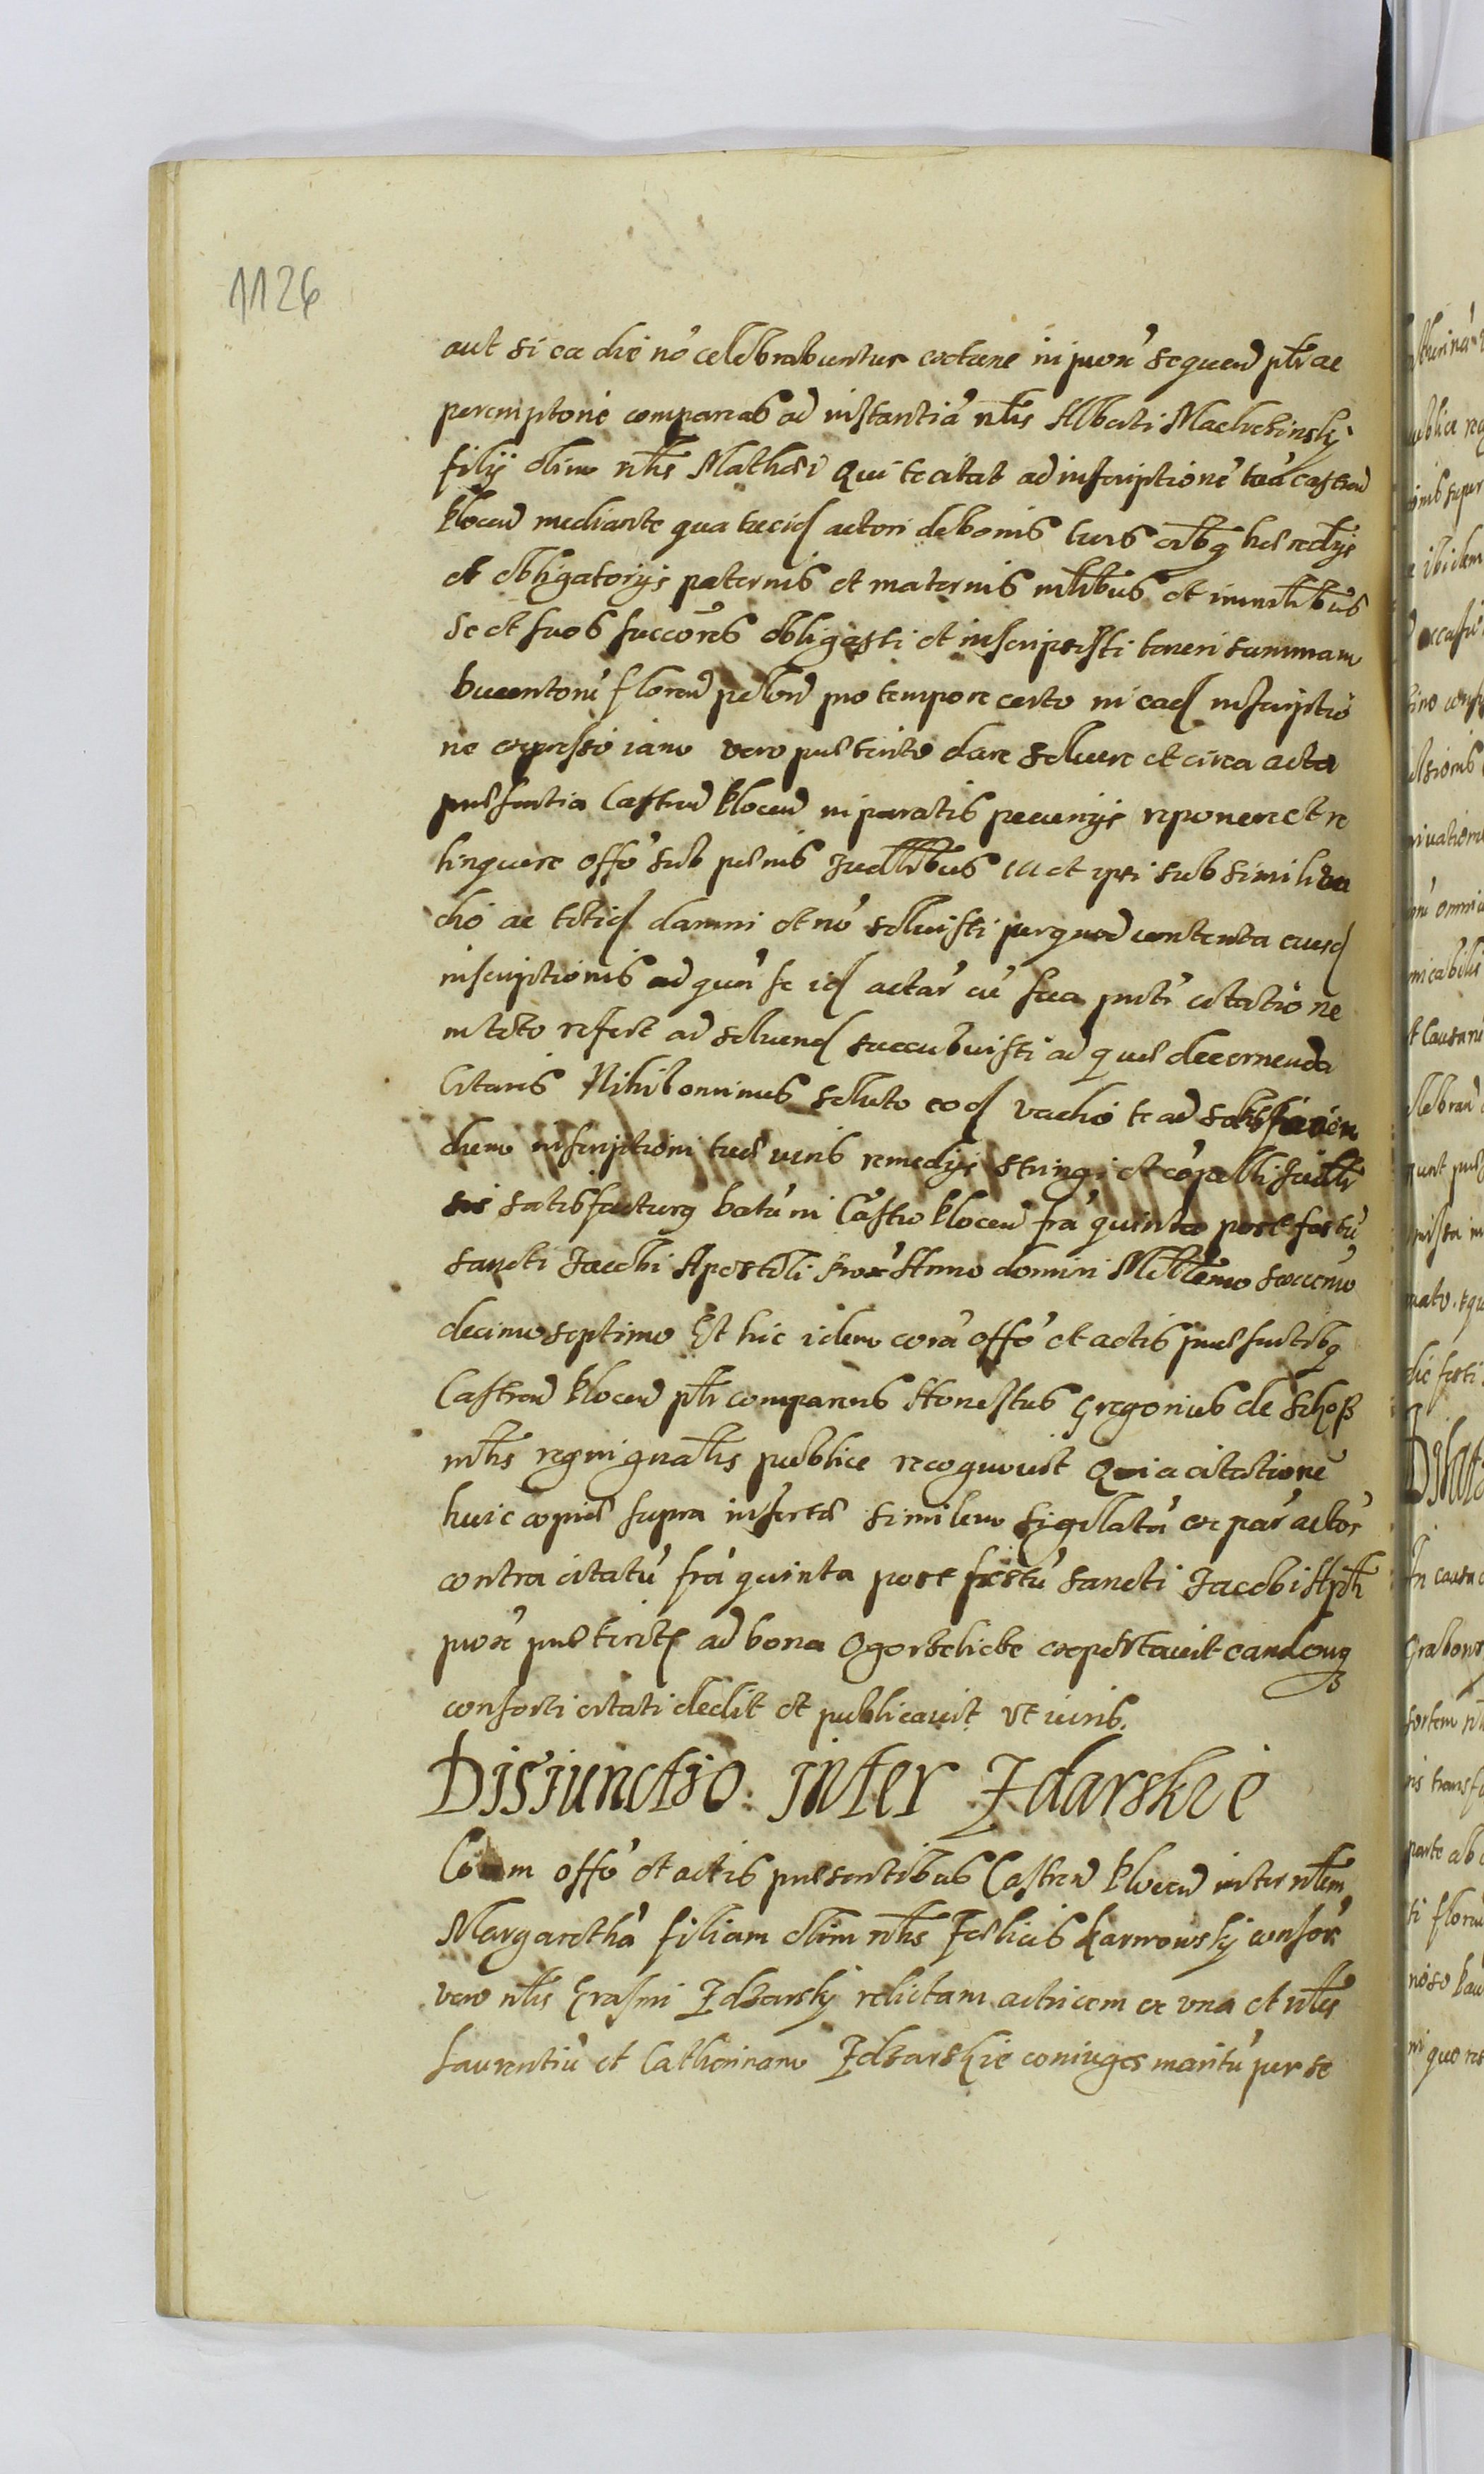 1126
aut si ea die nõ celebrabuntur extunc in prox' sequen ptr ac
peremptorie compareas ad instantiã nlis Alberti Machczinsky
filij olim nlis Mathæi Qui te citat ad inscriptionẽ tuã castren
kłocen mediante qua tu eid actori de bonis tuis oibq hæredijs
et obligatorijs paternis et maternis mlibus et immlibus
se et suos succores obligasti et inscripsisti teneri summam
ducentorũ floren polon pro tempore certo in ead inscriptio
ne expresso iam vero præterito dare soluere et circa acta
præsentia Castren kłocen in paratis pecunijs reponere et re
linquere offo sub pœnis Judlibus et ipsi sub simili va
dio ac totid damni et nõ soluisti per quod contenta eiusd
inscriptionis ad quã se id actor cũ sua pnti citatione
in toto refert ad soluend succubuisti ad quæ decernenda
Citaris Nihilominus soluto eod vadio te ad satisfacien
dum inscriptioni tuæ iuris remedijs stringi et cõpelli Judlr
sis satisfacturq Datũ in Castro kłocen fra quinta post festũ
sancti Jacobi Apostoli prox' Anno domini Millemo sexcenmo
decimo septimo Et hic idem corã offo et actis præsentibq
Castren kłocen ptr comparens Honestus Gregorius de
mlis regni gnalis publice recognouit Quia citationẽ
huic copiæ supra insertæ similem sigillatã ex par' actor'
contra citatũ fra quinta post festũ sancti Jacobi Apli
prox' præterit ad bona Ogorzelicze exportauit eandemq
consorti citati dedit et publicauit vt iuris.
Disiunctio inter Zdarskie
Coram offo et actis præsentibus Castren kłocen inter nlem
Margarethã filiam olim nlis Fælicis karnowsky consor'
vero nlis Erasmi Zdzarsky relictam actricem ex vna et nles
Laurentiũ et Catherinam Zdzarskie coniuges maritũ per se